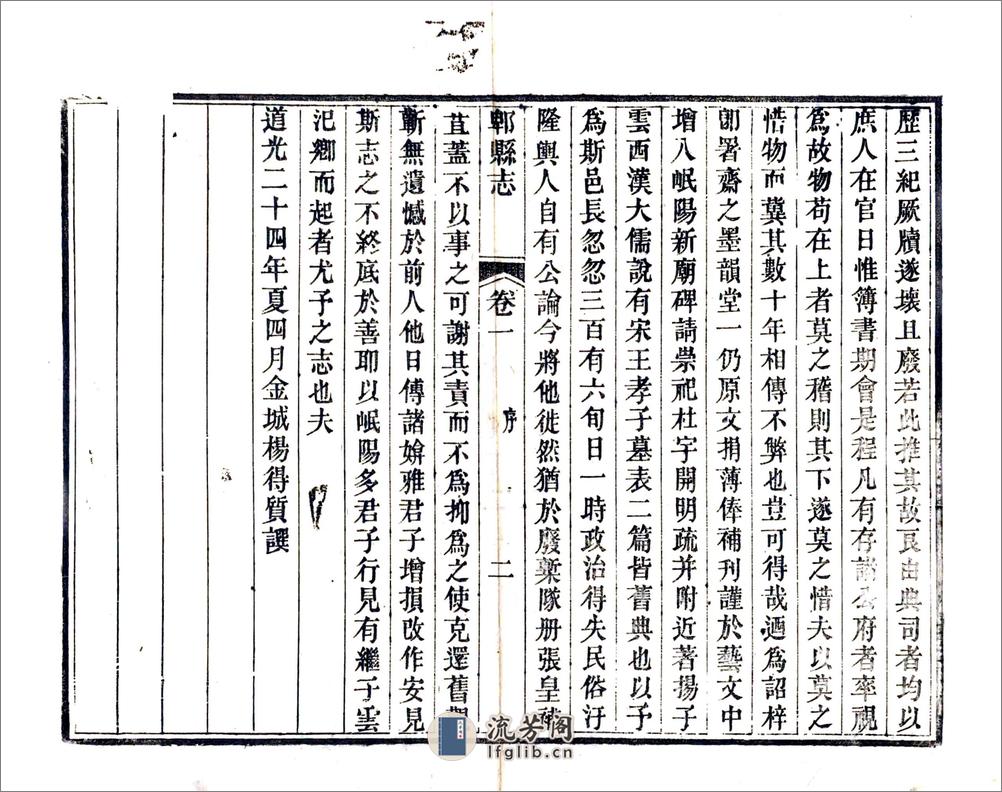 歷三紀厥牘遂壞且廢若此推其故良由典司者均以
庶人在官日惟簿書期會是程凡有存諸公府者率視
為故物苟在上者莫之稽則其下遂莫之惜夫以莫之
惜物而冀其數十年相傳不弊也豈可得哉迺為詔梓
卽署齋之墨韻堂一仍原文捐薄俸補刊謹於藝文中
增入岷陽新廟碑請崇祀杜宇開明疏并附近著揚子
雲西漢大儒說有宋王孝子墓表二篇皆舊典也以予
為斯邑長忽忽三百有六旬日一時政治得失民俗汙
隆輿人自有公論今將他徙然猶於廢槖隊册張皇補
郫縣志
卷一
序
二
苴蓋不以事之可謝其責而不為抑為之使克還舊觀
蘄無遺憾於前人他日傅諸媕雅君子增損改作安見
斯志之不終底於善耶以岷陽多君子行見有繼子雲
汜鄉而起者尤予之志也夫
道光二十四年夏四月金城楊得質譔
流芳阁
lfglib.cn